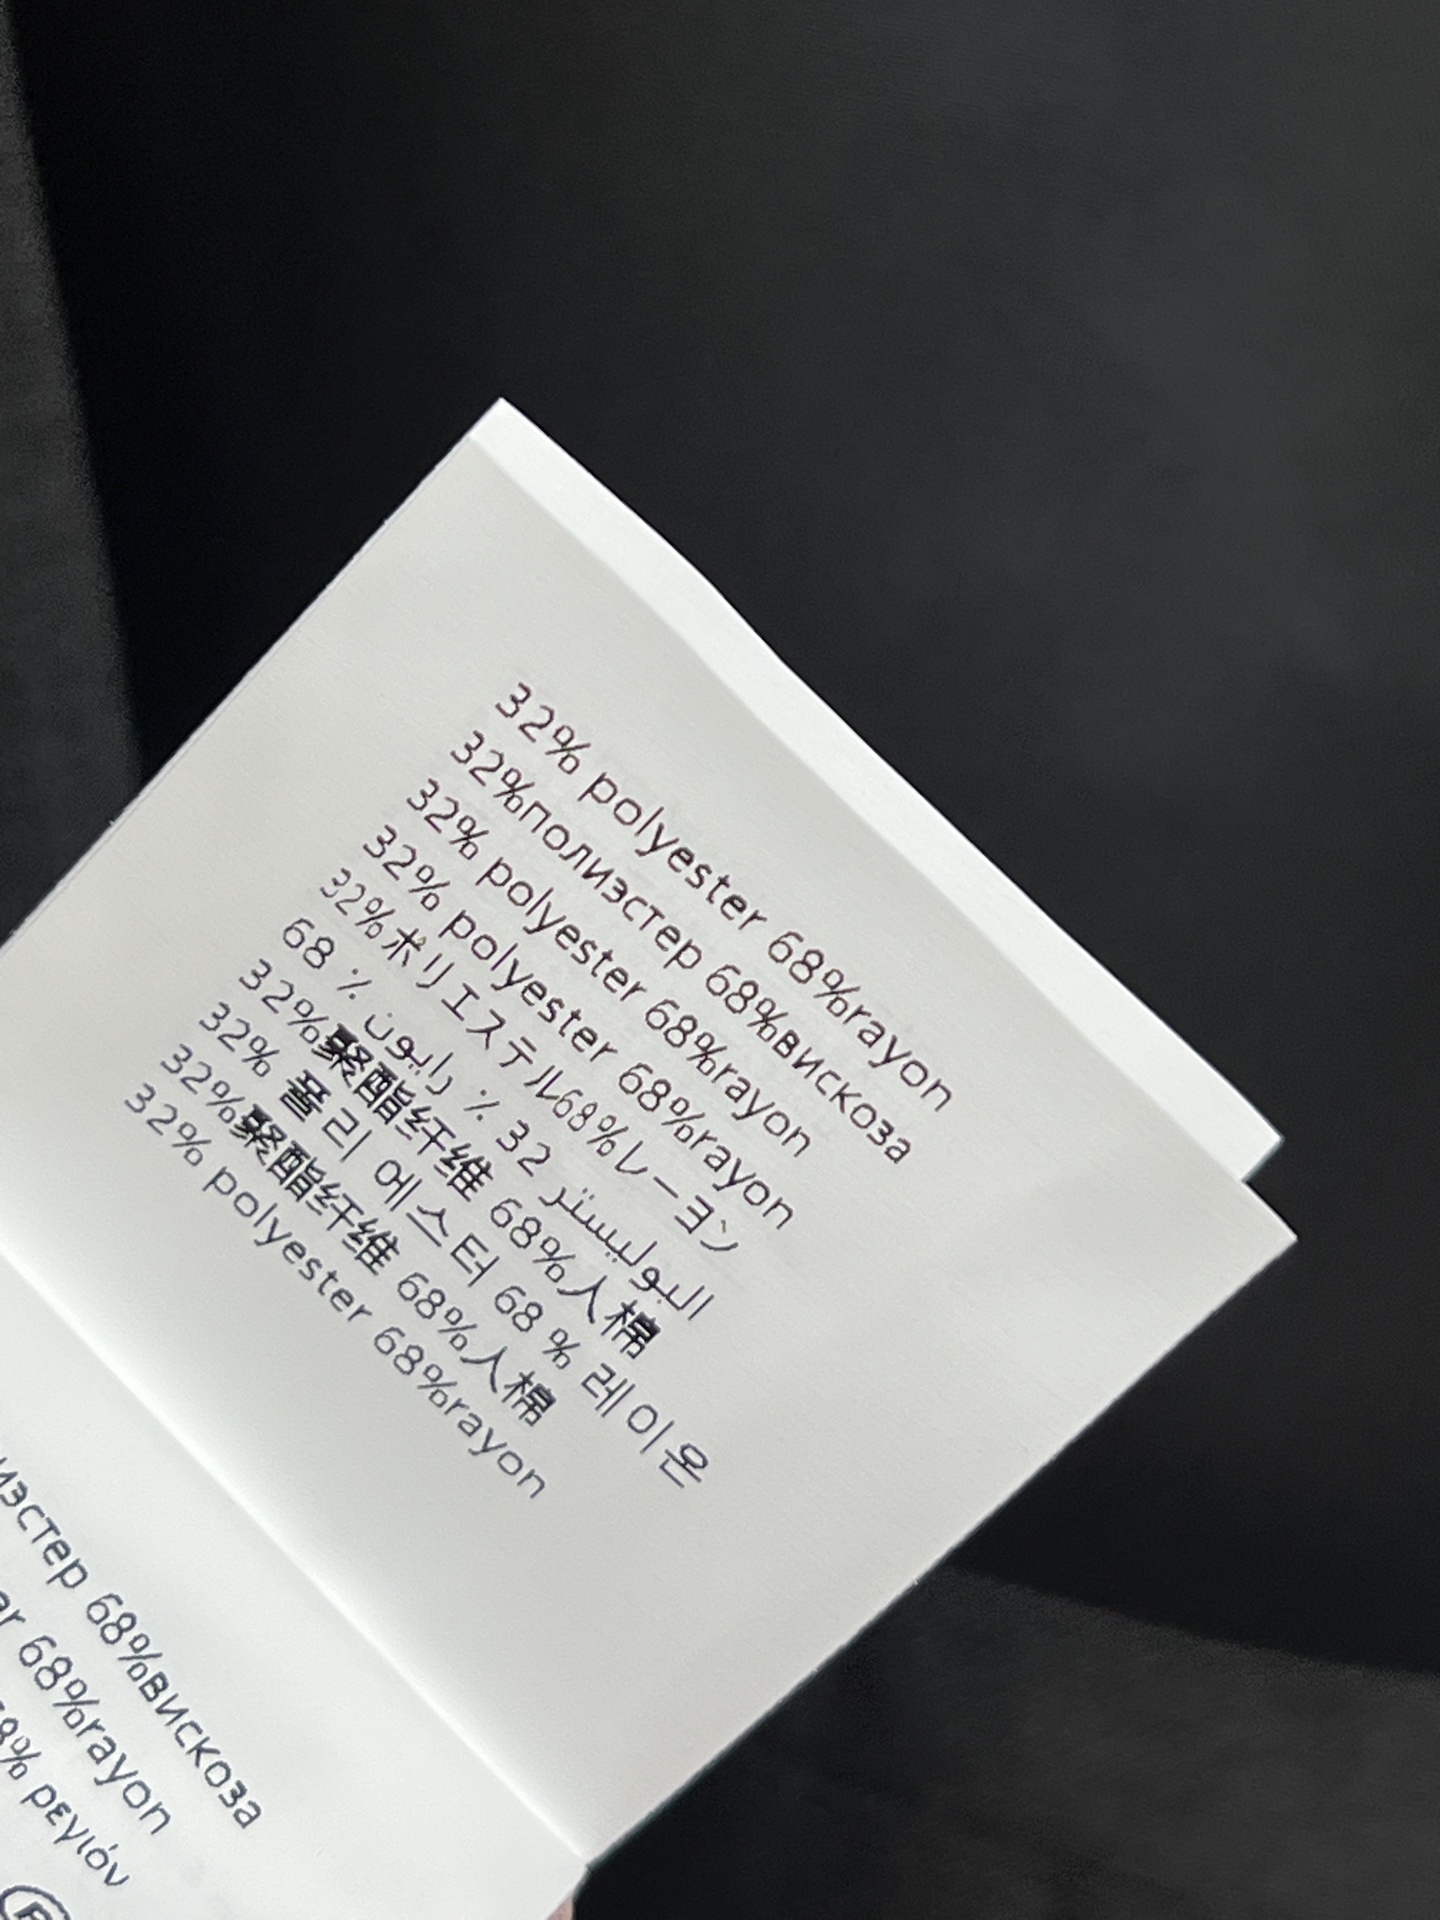 32% polyester 68%rayon
32%полиэстер 68%вискоза
32% polyester 68%rayon
32% polyester 68%rayon
32%ポリエステル68%レーヨン
68 ٪ رايون ٪ 32 البوليستر
32%聚酯纤维 68%人棉
32% 폴리 에스터 68 % 레이온
32%聚酯纤维 68%人棉
32% polyester 68%rayon
68%вискоза
68%rayon
ρεγιόν